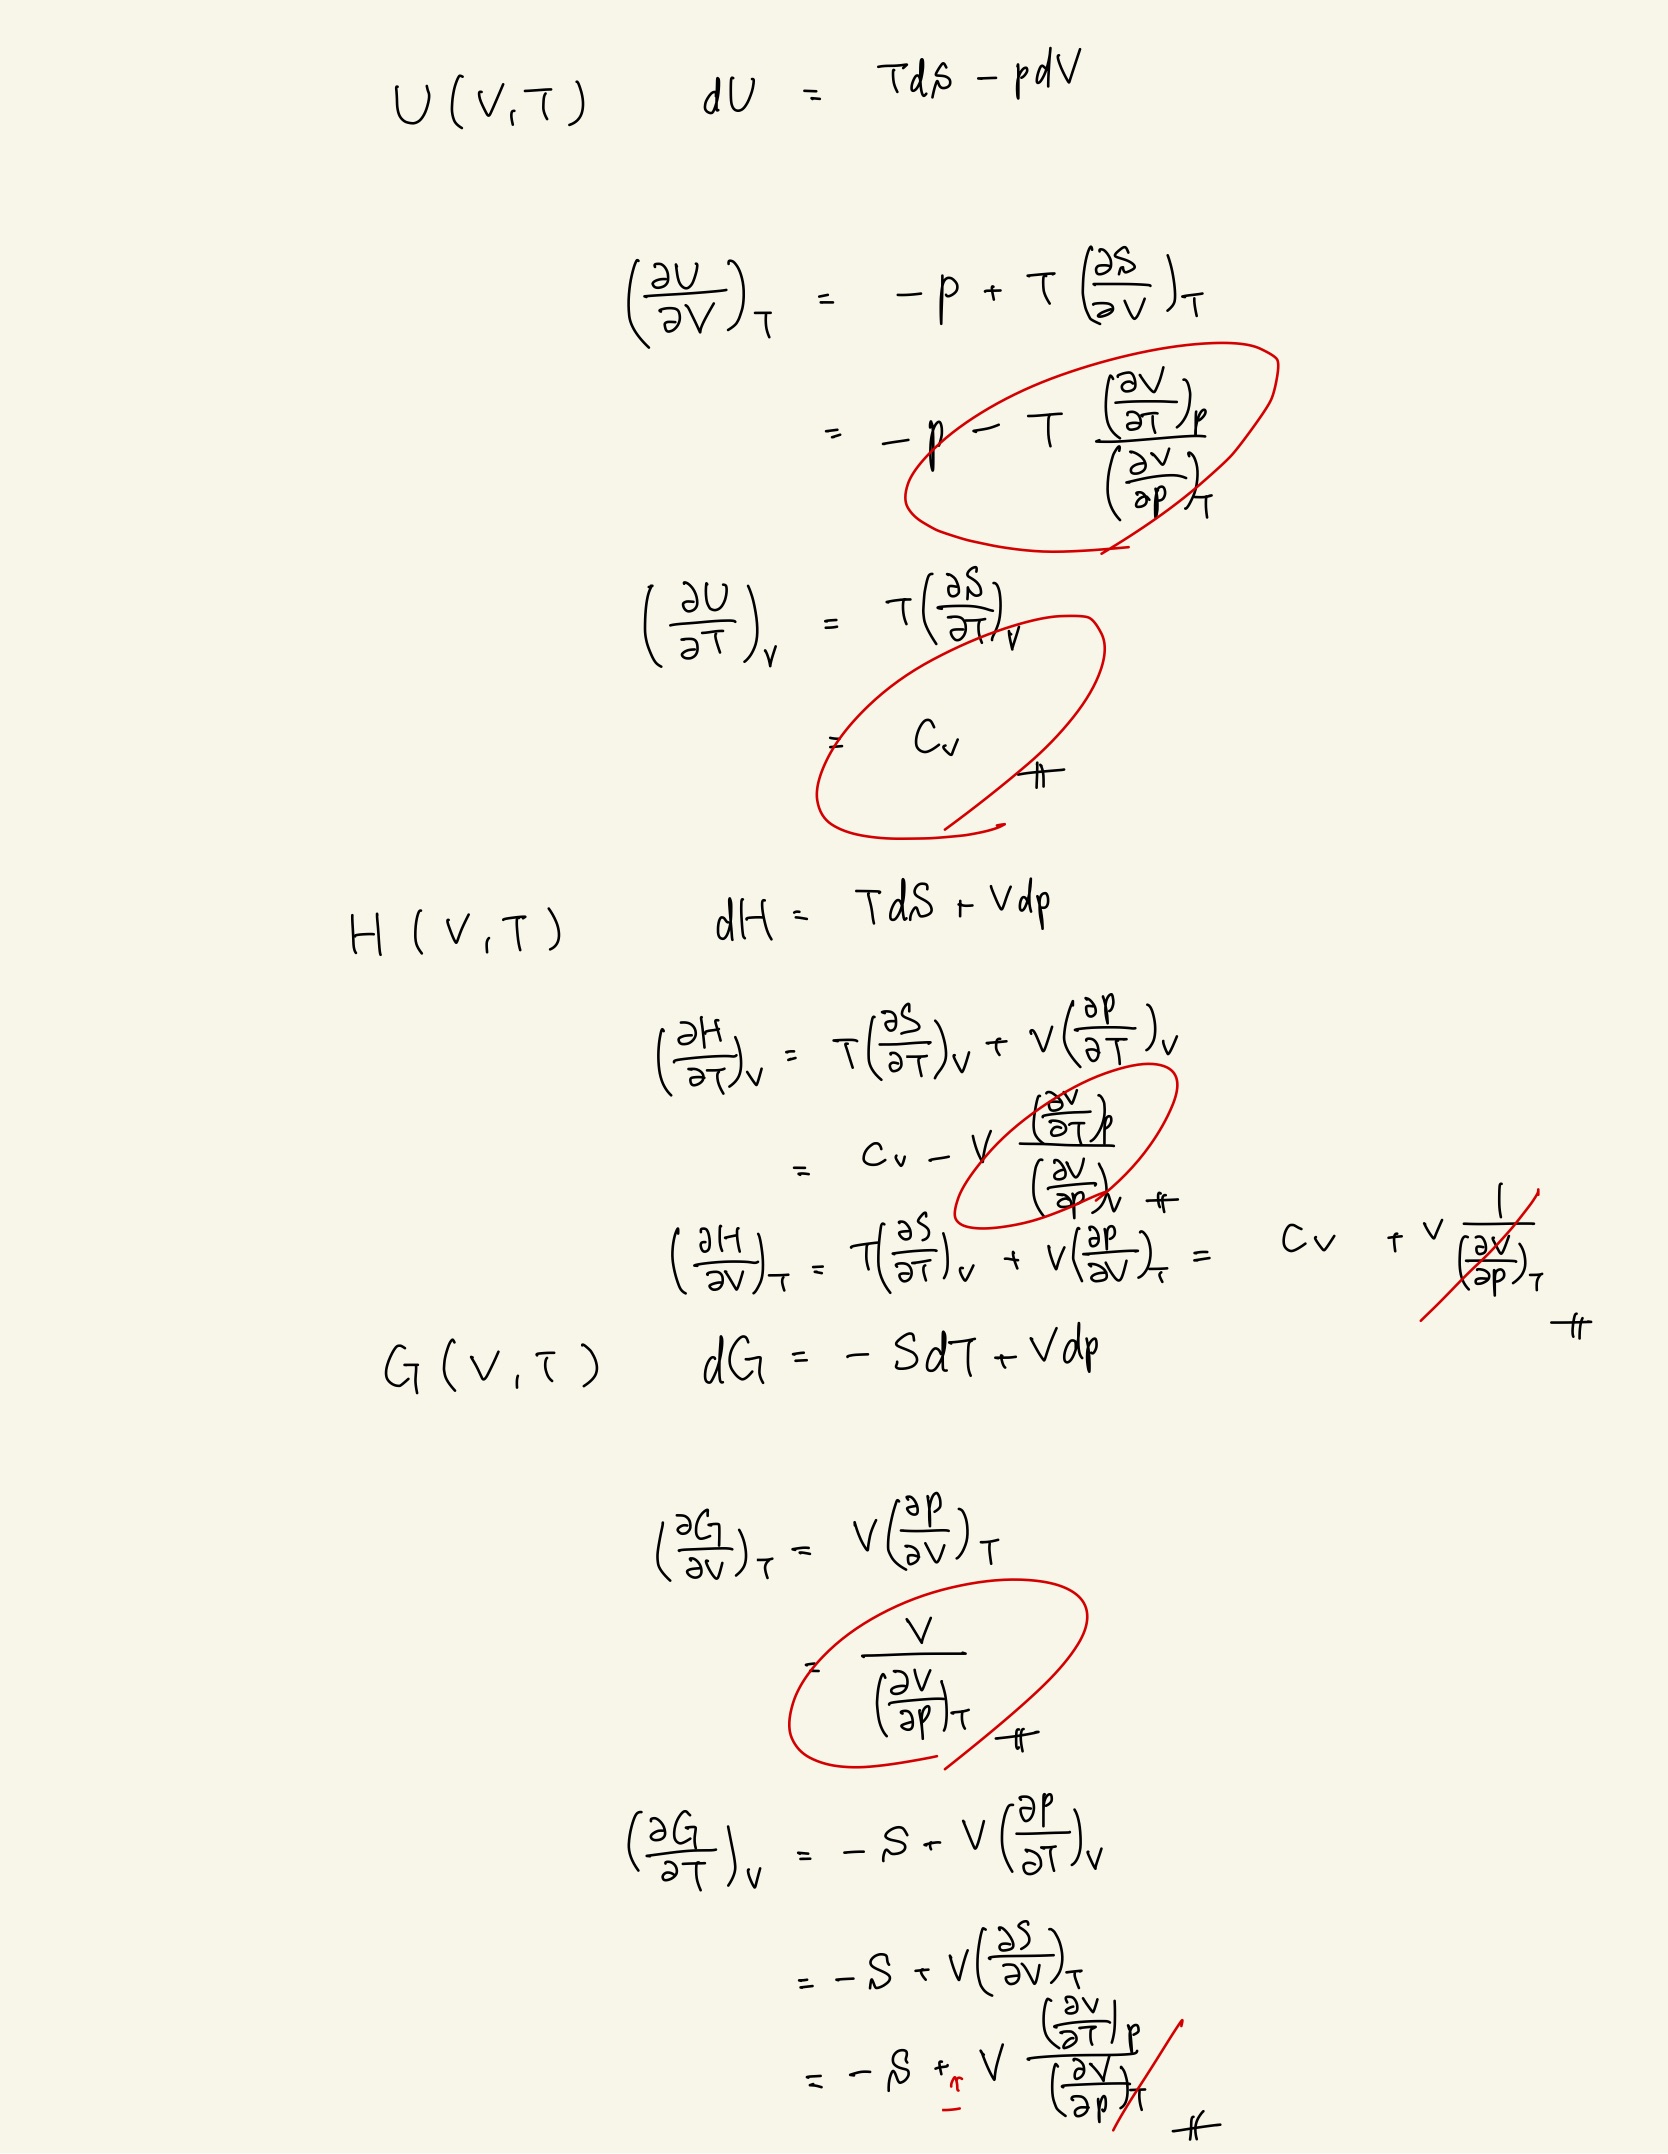 U(V,T) dU = TdS - pdV
(∂U/∂V)_T = -p + T(∂S/∂V)_T
= -p - T (∂V/∂T)_p / (∂V/∂p)_T
(∂U/∂T)_V = T(∂S/∂T)_V
= C_V #
H(V,T) dH = TdS + Vdp
(∂H/∂T)_V = T(∂S/∂T)_V + V(∂p/∂T)_V
= C_V - V (∂V/∂T)_p / (∂V/∂p)_V #
(∂H/∂V)_T = T(∂S/∂T)_V + V(∂p/∂V)_T = C_V + V 1/(∂V/∂p)_T #
G(V,T) dG = -SdT + Vdp
(∂G/∂V)_T = V(∂p/∂V)_T
= V/(∂V/∂p)_T #
(∂G/∂T)_V = -S + V(∂p/∂T)_V
= -S + V(∂S/∂V)_T
= -S + V (∂V/∂T)_p / (∂V/∂p)_T #
↑
-